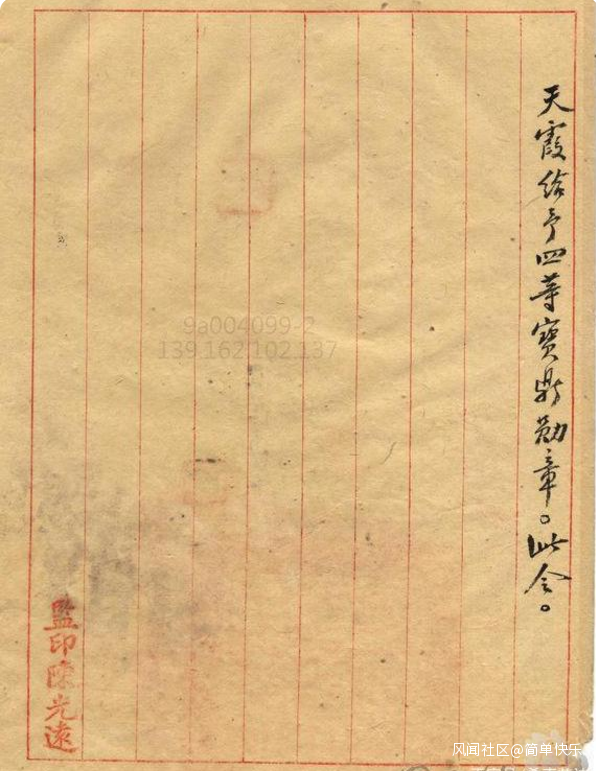 天霞给予四等寶鼎勛章。此令。
監印陳光遠
9a004099-2
139 162 102 137
风闻社区@简单快乐